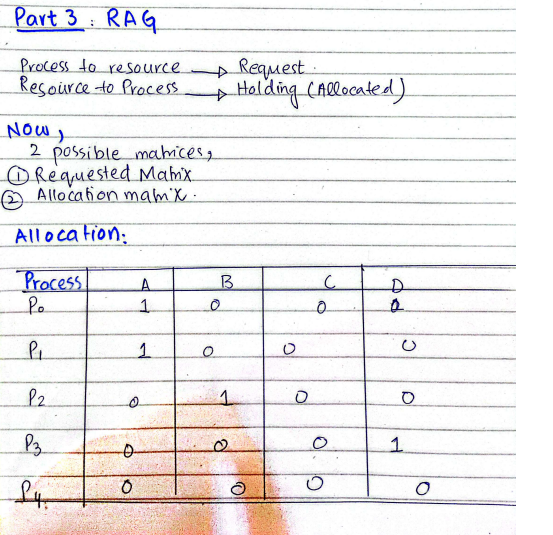 Part 3 : RAG
Process to resource → Request.
Resource to Process → Holding (Allocated)
Now,
2 possible matrices,
① Requested Matrix
② Allocation matrix.
Allocation:
Process A B C D
P0 1 0 0
P1 1 0 0 0
P2 0 1 0 0
P3 0 0 0 1
P4. 0 0 0 0